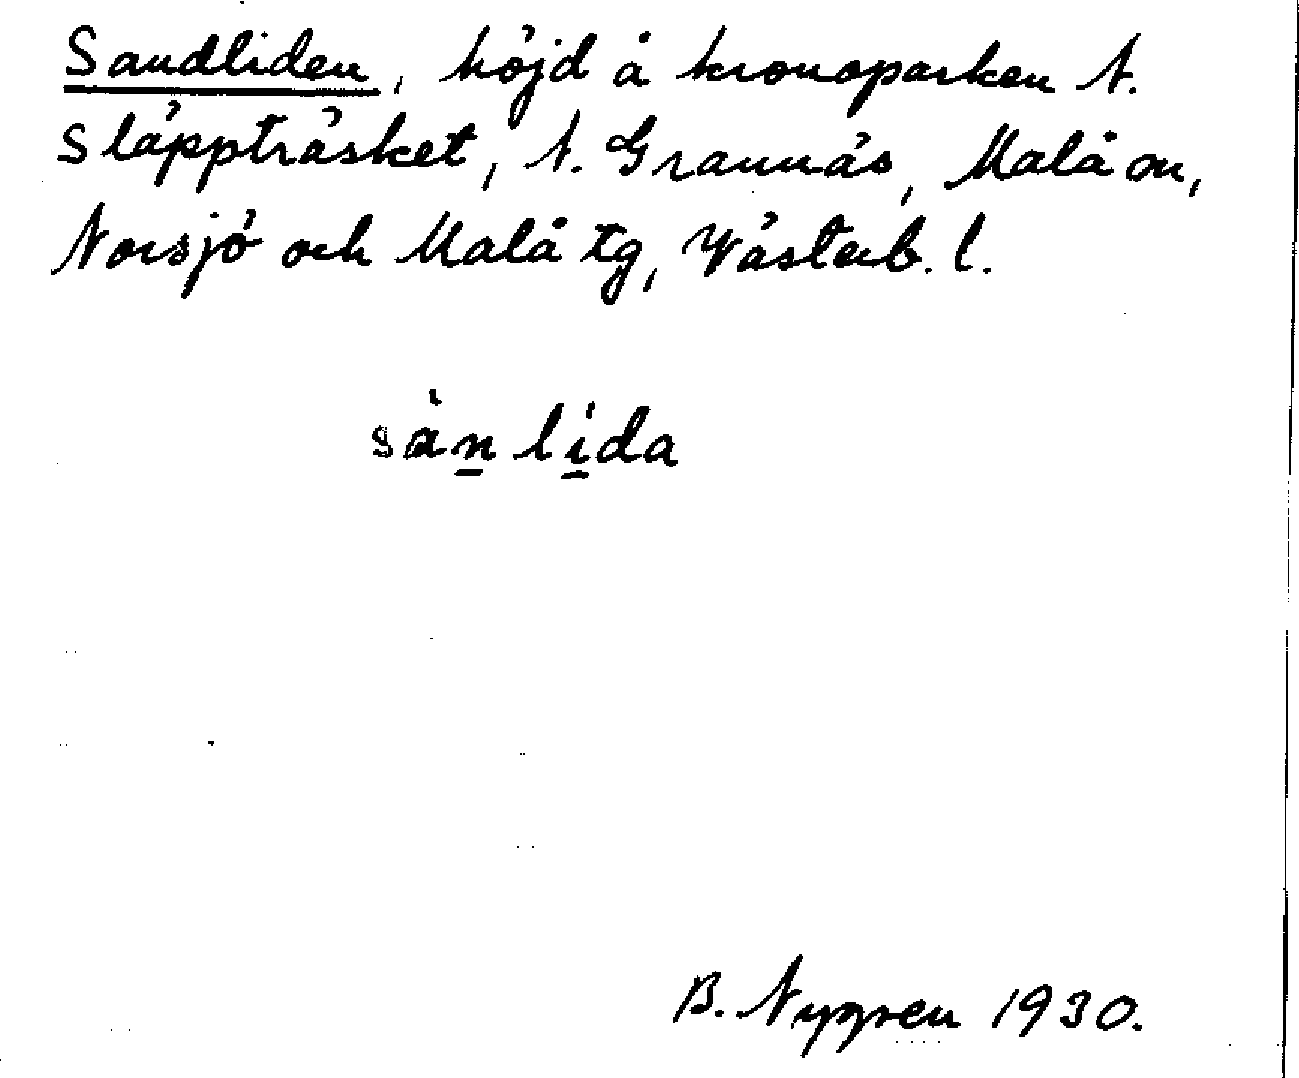 Sandliden, höjd å kronoparken N.
Släppträsket, N. Grannäs, Malå sn,
Norsjö och Malå tg, Västerb. l.
sànlída
B. Nygren 1930.